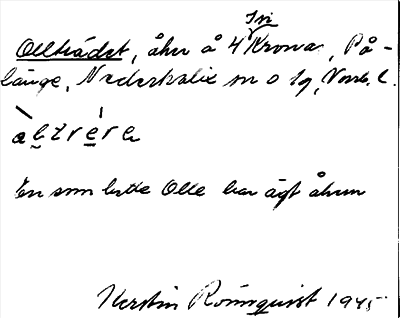 Ollträdet, åker å 4 Kronor, På-
länge, Nederkalix sn o lg, Nordb. l.
En som hette Olle har ägt åkern
Kerstin Rönnquist 1945